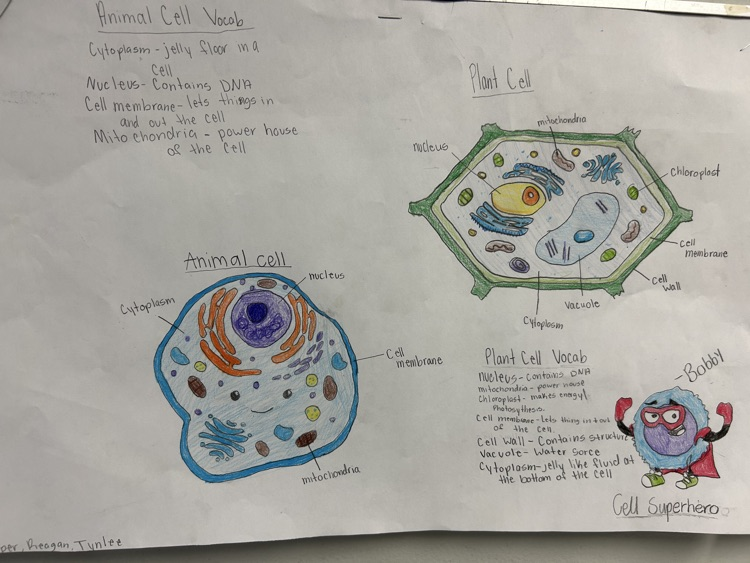 Animal Cell Vocab
Cytoplasm - jelly floor in a
cell
Nucleus - Contains DNA
Cell membrane - lets things in
and out the cell
Mitochondria - power house
of the cell
Plant Cell
mitochondria
nucleus
Chloroplast
Cell
membrane
Cell
wall
Vacuole
Cytoplasm
Animal cell
nucleus
Cytoplasm
Cell
membrane
mitochondria
Plant Cell Vocab
nucleus - contains DNA
mitochondria - power house
Chloroplast - makes energy/
Photosythesis.
Cell membrane - lets thing in + out
of the cell.
Cell wall - Contains structure
Vacuole - Water sorce
Cytoplasm - jelly like fluid at
the bottom of the cell
- Bobby
Cell Superhero
per, Reagan, Tynlee